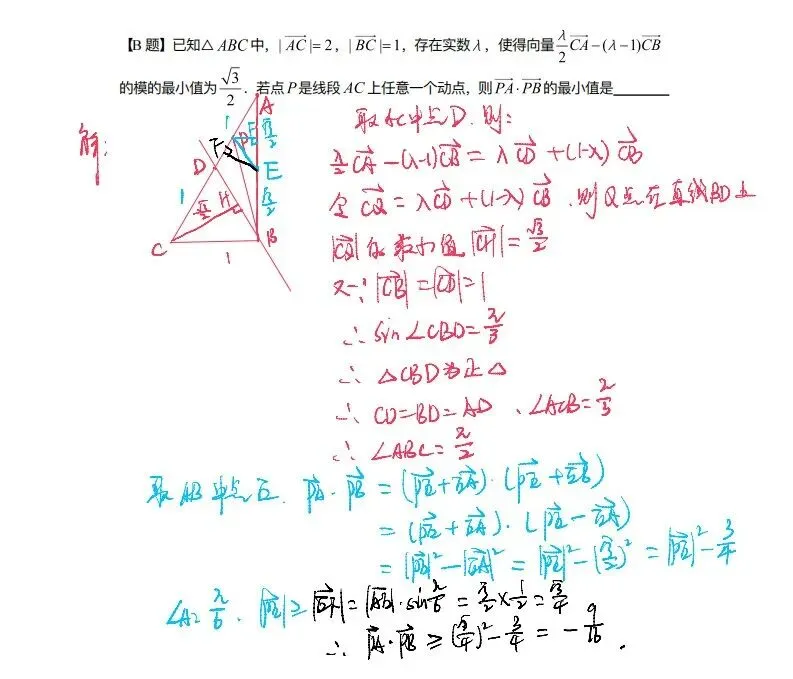 【B 题】已知△ABC中，|$\overrightarrow{AC}$|=2，|$\overrightarrow{BC}$|=1，存在实数λ，使得向量$\frac{λ}{2}\overrightarrow{CA}-(λ-1)\overrightarrow{CB}$
的模的最小值为$\frac{\sqrt{3}}{2}$．若点P是线段AC上任意一个动点，则$\overrightarrow{PA}·\overrightarrow{PB}$的最小值是______
解：
取AC中点D．则：
$\frac{λ}{2}\overrightarrow{CA}-(λ-1)\overrightarrow{CB}=λ\overrightarrow{CD}+(1-λ)\overrightarrow{CB}$
令$\overrightarrow{CQ}=λ\overrightarrow{CD}+(1-λ)\overrightarrow{CB}$．则Q点在直线BD上
|$\overrightarrow{CQ}$|的最小值|$\overrightarrow{CH}$|=$\frac{\sqrt{3}}{2}$
又∵|$\overrightarrow{CB}$|=|$\overrightarrow{CD}$|=1
∴sin∠CBD=$\frac{π}{3}$
∴△CBD为正△
∴CD=BD=AD、∠ACB=$\frac{π}{3}$
∴∠ABC=$\frac{π}{2}$
取AB中点E．$\overrightarrow{PA}·\overrightarrow{PB}=(\overrightarrow{PE}+\overrightarrow{EA})·(\overrightarrow{PE}+\overrightarrow{EB})$
=$(\overrightarrow{PE}+\overrightarrow{EA})·(\overrightarrow{PE}-\overrightarrow{EA})$
=$|\overrightarrow{PE}|^2-|\overrightarrow{EA}|^2=|\overrightarrow{PE}|^2-(\frac{\sqrt{3}}{2})^2=|\overrightarrow{PE}|^2-\frac{3}{4}$
∠A=$\frac{π}{6}$．|$\overrightarrow{PE}$|≥|$\overrightarrow{EF}$|=|$\overrightarrow{AE}$|·sin$\frac{π}{6}$=$\frac{\sqrt{3}}{2}×\frac{1}{2}=\frac{\sqrt{3}}{4}$
∴$\overrightarrow{PA}·\overrightarrow{PB}≥(\frac{\sqrt{3}}{4})^2-\frac{3}{4}=-\frac{9}{16}$．
A
1
F
P
$\frac{\sqrt{3}}{2}$
D
E
1
$\frac{\sqrt{3}}{2}$
H
$\frac{\sqrt{3}}{2}$
C
B
1